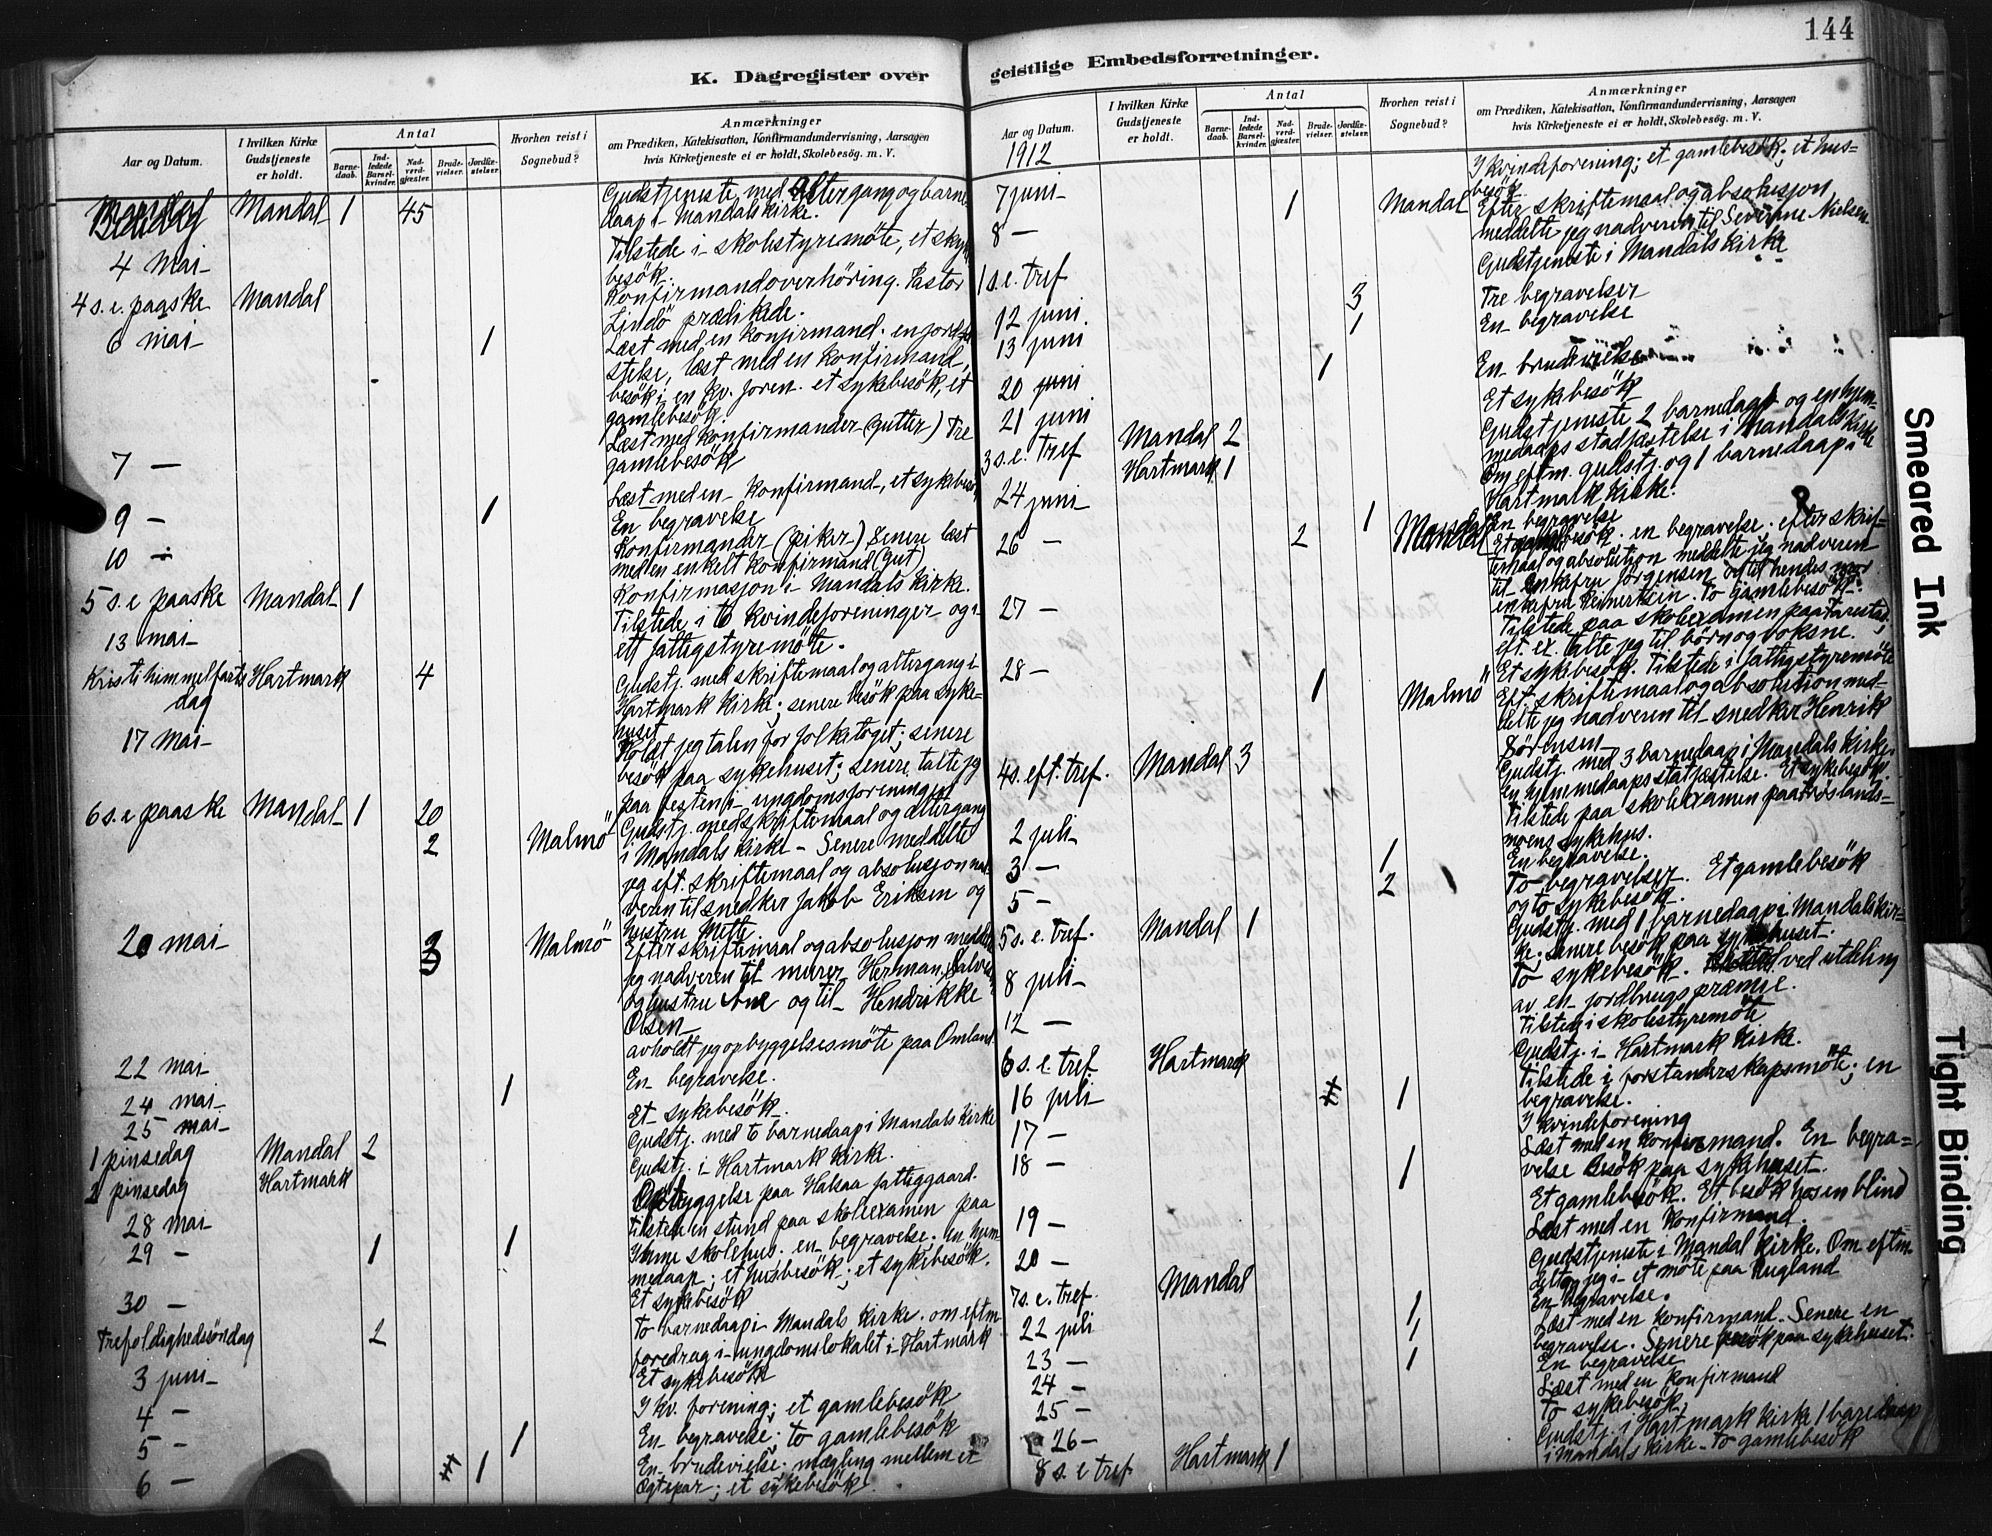 144
K. Dagregister over
geistlige Embedsforretninger.
Aar og Datum.
I hvilken Kirke
Gudstjeneste
er holdt.
Antal
Barne-
daab.
Ind-
ledede
Barsel-
kvinder.
Nad-
verd-
gjæster.
Brude-
vielser.
Jordfæ-
stelser.
Hvorhen reist i
Sognebud?
Anmærkninger
om Prædiken, Katekisation, Konfirmandundervisning, Aarsagen
hvis Kirketjeneste ei er holdt, Skolebesøg. m. V.
Mandal 1 45
Gudstjeneste med altergang og barne
daap i Mandals kirke.
4 Mai
Tilstede i skolestyremöte, et syke
besök.
4 s. e. paaske Mandal
Konfirmandoverhöring. Pastor
Lindö prædikede.
6 mai 1
Læst med en konfirmand. en jordfæ
stelse, læst med en konfirmand,
besök i en kv. foren. et sykebesök, et
gamlebesök.
7 —
Læst med konfirmander (gutter) Tre
gamlebesök
Læst med en konfirmand, et sykebesö
9 — 1
En begravelse
10 —
Konfirmander (piker) Senere læst
med en enkelt konfirmand (gut)
5 s. e paaske Mandal 1
Konfirmasjon i Mandals kirke.
13 mai
Tilstede i 6 kvindeforeninger og i
ett fattigstyremöte.
Kristi himmelfarts Hartmark 4
dag
Gudstj. med skriftemaal og altergang i
Hartmark kirke; senere besök paa syke=
huset
17 mai
Holdt jeg talen for folketoget; senere
besök paa sykehuset; senere talte jeg
paa festen i ungdomsforeningen
6 s. e paaske Mandal 1 20
2 Malmö
Gudstj. med skriftemaal og altergang
i Mandals kirke - Senere meddelte
jeg eft. skriftemaal og absolusjon nad
veren til snedker Jakob Eriksen og
hustru Mette
20 mai 3 Malmö
Efter skriftemaal og absolusjon meddel
jeg nadveren til murer Herman
og hustru Ane og til Hendrikke
Olsen
22 mai
avholdt jeg opbyggelsesmöte paa Omland.
24 mai 1
En begravelse.
25 mai
Et sykebesök.
1 pinsedag Mandal 2
Gudstj. med to barnedaap i Mandals kirke
2 pinsedag Hartmark
Gudstj. i Hartmark kirke.
28 mai
Opbyggelse paa Halsaa fattiggaard.
29 - 1 1
tilstede en stund paa skoleexamen paa
skolehus. en begravelse; en hjem=
medaap; et husbesök; et sykebesök.
30 —
Et sykebesök
Trefoldighedsöndag 2
to barnedaap i Mandals kirke. om eftm
foredrag i ungdomslokalet i Hartmark
3 juni
Et sykebesök
4 —
I kv. forening; et gamlebesök
5 — 1
En begravelse; to gamlebesök
6 — 1
En brudevielse. mægling mellem et
ægtepar; et sykebesök.
Aar og Datum.
1912
I hvilken Kirke
Gudstjeneste
er holdt.
Antal
Barne-
daab.
Ind-
ledede
Barsel-
kvinder.
Nad-
verd-
gjæster.
Brude-
vielser.
Jordfæ-
stelser.
Hvorhen reist i
Sognebud?
Anmærkninger
om Prædiken, Katekisation, Konfirmandundervisning, Aarsagen
hvis Kirketjeneste ei er holdt, Skolebesög. m. V.
7 juni
I kvindeforening; et gamlebesök; et hus=
besök
8 — 1 Mandal
Efter skriftemaal og absolusjon
meddelte jeg nadveren til Severine Nielsen.
1 s. e. tref
Gudstjeneste i Mandals kirke
12 juni 3
Tre begravelser
13 juni 1
En begravelse
20 juni 1
En brudevielse
21 juni
Et sykebesök
3 s. e. tref Mandal 2
Hartmark 1
Gudstjeneste 2 barnedaap og en hjem=
medaaps stadfæstelse i Mandals kirke
Om eftm. gudstj. og 1 barnedaap i
Hartmark kirke.
24 juni 1
En begravelse
26 — 2 Mandal
besök. en begravelse. efter skrif=
temaal og absolution meddelte jeg nadveren
til Enkefru Jörgensen og til hendes mor
enkefru Reinertsen. to gamlebesök.
27 —
Tilstede paa skoleexamen paa Tarestad;
eft. ex. talte jeg til börn og voksne.
28 — 1 Malmö
Et sykebesök. Tilstede i fattigstyremöte
Eft. skriftemaal og absolution med=
delte jeg nadveren til snedker Henrik
Sörensen
4 s. eft. tref. Mandal 3
Gudstj. med 3 barnedaap i Mandals kirke.
en hjemmedaaps statfæstelse. Et sykebesök.
2 juli
Tilstede paa skoleexamen paa
moens sykehus.
3 — 1
En begravelse.
5 — 2
To begravelser. Et gamlebesök
og to sykebesök.
5 s. e. tref. Mandal 1
Gudstj. med 1 barnedaap i Mandals kir=
ke. senere besök paa sykehuset.
8 juli
To sykebesök. ved utdeling
av en jordbrugspræmie.
12 —
Tilstede i skolestyremöte
6 s. e. tref. Hartmark
Gudstj. i Hartmark kirke.
16 juli 1
Tilstede i forstanderskapsmöte; en
begravelse.
17 —
I kvindeforening
18 — 1
Læst med en konfirmand. En begra=
velse Besök paa sykehuset.
19 —
Et gamlebesök. Et besök hos en blind
20 —
Læst med en konfirmand.
7 s. e. tref. Mandal
Gudstjeneste i Mandal kirke. Om eftm.
jeg i et möte paa Ungland
22 juli 1
En begravelse.
23 — 1
Læst med en konfirmand. Senere en
begravelse. Senere besök paa sykehuset.
24 — 1
En begravelse
25 —
Læst med en konfirmand
26 —
To sykebesök.
8 s. e tref Hartmark 1
Gudstj. i Hartmark kirke 1 barnedaap
i Mandals kirke. To gamlebesök
Smeared Ink
Tight Binding